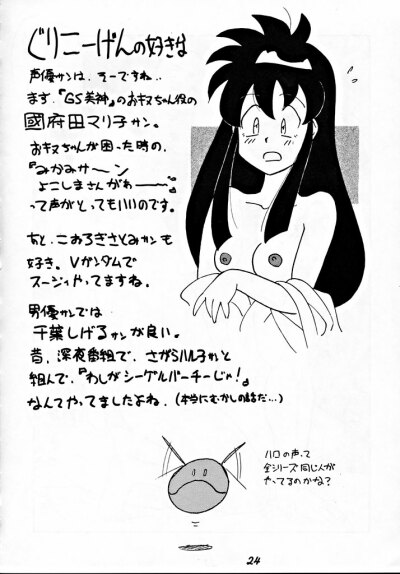 ぐりこーげんの好きな
声優サンは、そーですね..
まず、『GS美神』のおキヌちゃん役の
國府田マリ子サン。
おキヌちゃんが困った時の、
『みかみサーン
よこしまさんがぁ――〜。』
って声がとってもいいのです。
あと、こおろぎさとみサンも
好き。Vガンダムで
スージィやってますね。
男優サンでは
千葉しげるサンが良い。
昔、深夜番組で、さがらハル子サンと
組んで、『わしがシーゲルバーチーじゃ!』
なんてやってましたよね。(本当にむかしの話だ…)
ハロの声って
全シリーズ同じ人が
やってるのかな?
24